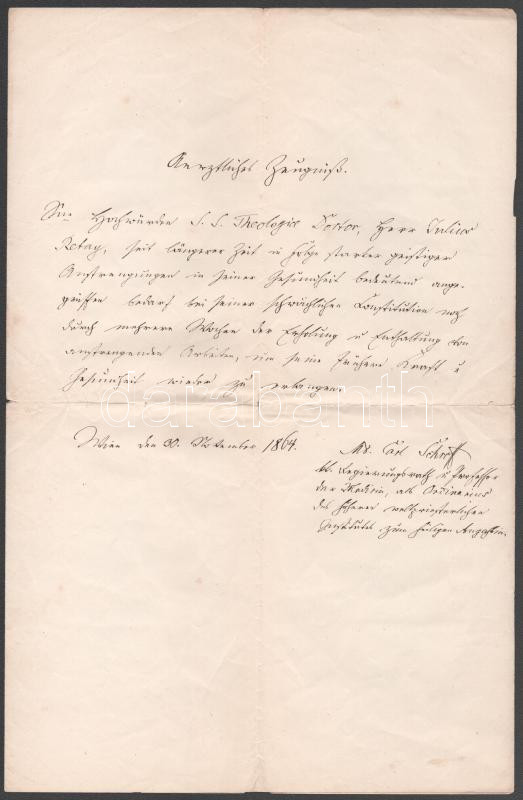 Aerztliches Zeugniß.
Sne Hochwürden S. S. Theologie Doctor, Herr Julius
Rétay, seit längerer Zeit in Folge starker geistiger
Anstrengungen in seiner Gesundheit bedeutend ange-
griffen bedarf bei seiner schwächlichen Constitution noch
durch mehrere Wochen der Erholung u Enthaltung von
anstrengenden Arbeiten, um seine frühere Kraft u
Gesundheit wieder zu erlangen.
darabanth
Wien den 30. September 1864.
Md. Carl Schroff
kk. Regierungsrath u Professor
der Medicin, als Ordinarius
des höheren weltpriesterlichen
Institutes zum heiligen Augustin.